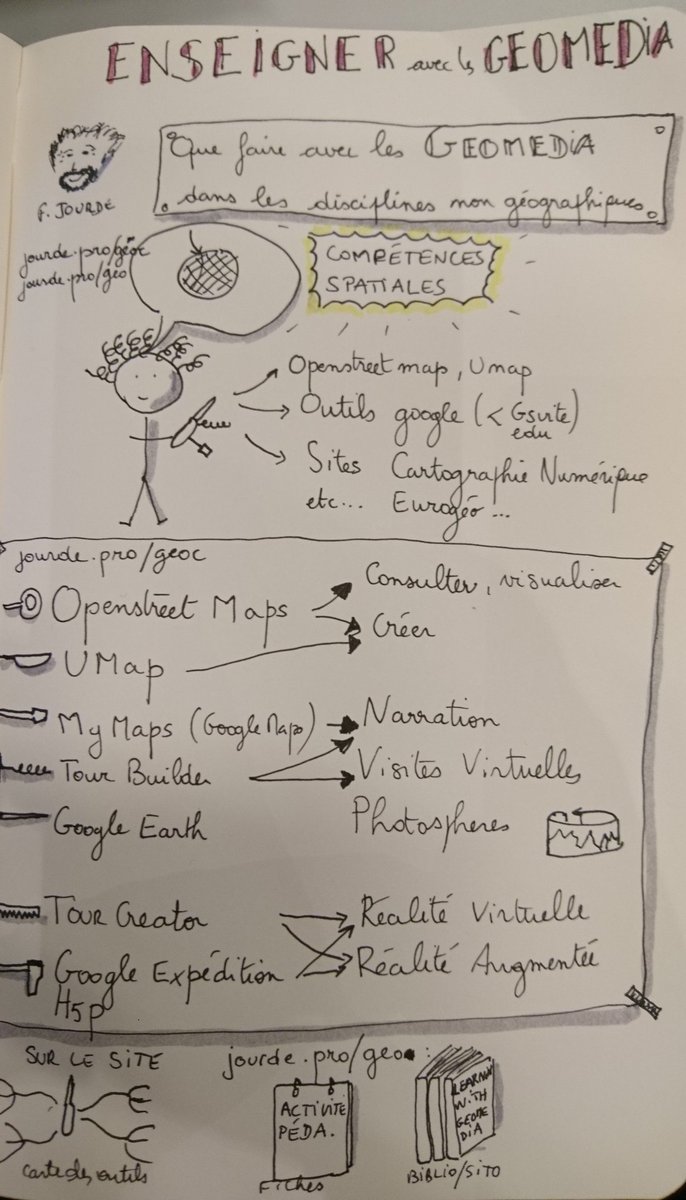 ENSEIGNER avec les GEOMEDIA
Que faire avec les GEOMEDIA
dans les disciplines non géographiques.
F. JOURDE
jourde.pro/geoc
jourde.pro/geo
COMPÉTENCES
SPATIALES
Openstreet map, Umap
Outils google (< Gsuite)
edu
Sites Cartographie Numérique
etc... Eurogéo ...
jourde.pro/geoc
Openstreet Maps
Consulter, visualiser
Créer
UMap
My Maps (Google Maps)
Narration
Tour Builder
Visites Virtuelles
Google Earth
Photospheres
Tour Creator
Réalité Virtuelle
Google Expédition
Réalité Augmentée
H5p
SUR LE SITE
jourde.pro/geo :
ACTIVITE
PÉDA.
LEARN
WITH
GEOME
DIA
carte des outils
Fiches
BIBLIO/SITO